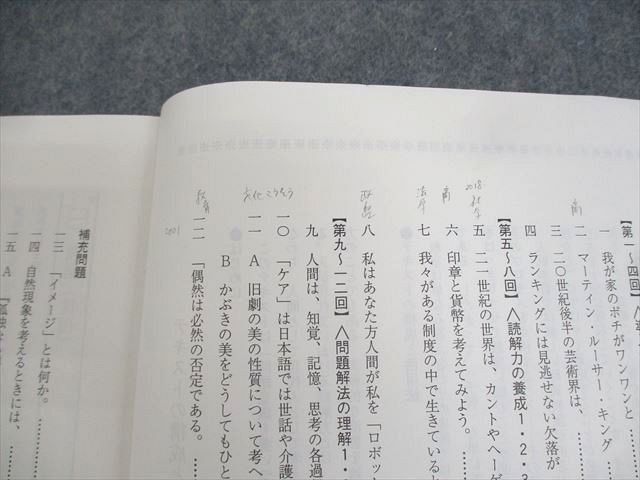 【第一~四回】〈
一 我が家のポチがワンワンと
二 マーティン・ルーサー・キング
三 二〇世紀後半の芸術界は、
四 ランキングには見逃せない欠落が
【第五~八回】〈読解力の養成1・2・3
五 二一世紀の世界は、カントやヘーゲ
六 印章と貨幣を考えてみよう。……
七 我々がある制度の中で生きていると
【第九~一二回】〈問題解法の理解1・
八 私はあなた方人間が私を「ロボット
九 人間は、知覚、記憶、思考の各過
一〇 「ケア」は日本語では世話や介護
一一 A 旧劇の美の性質について考へ
B かぶきの美をどうしてもひと
一二 「偶然は必然の否定である。……
補充問題
一三 「イメージ」とは何か。……
一四 自然現象を考えるときには、
一五 A 『孤独な
商
2018
社学
商
法学
政経
文化こうそう
教育
2001